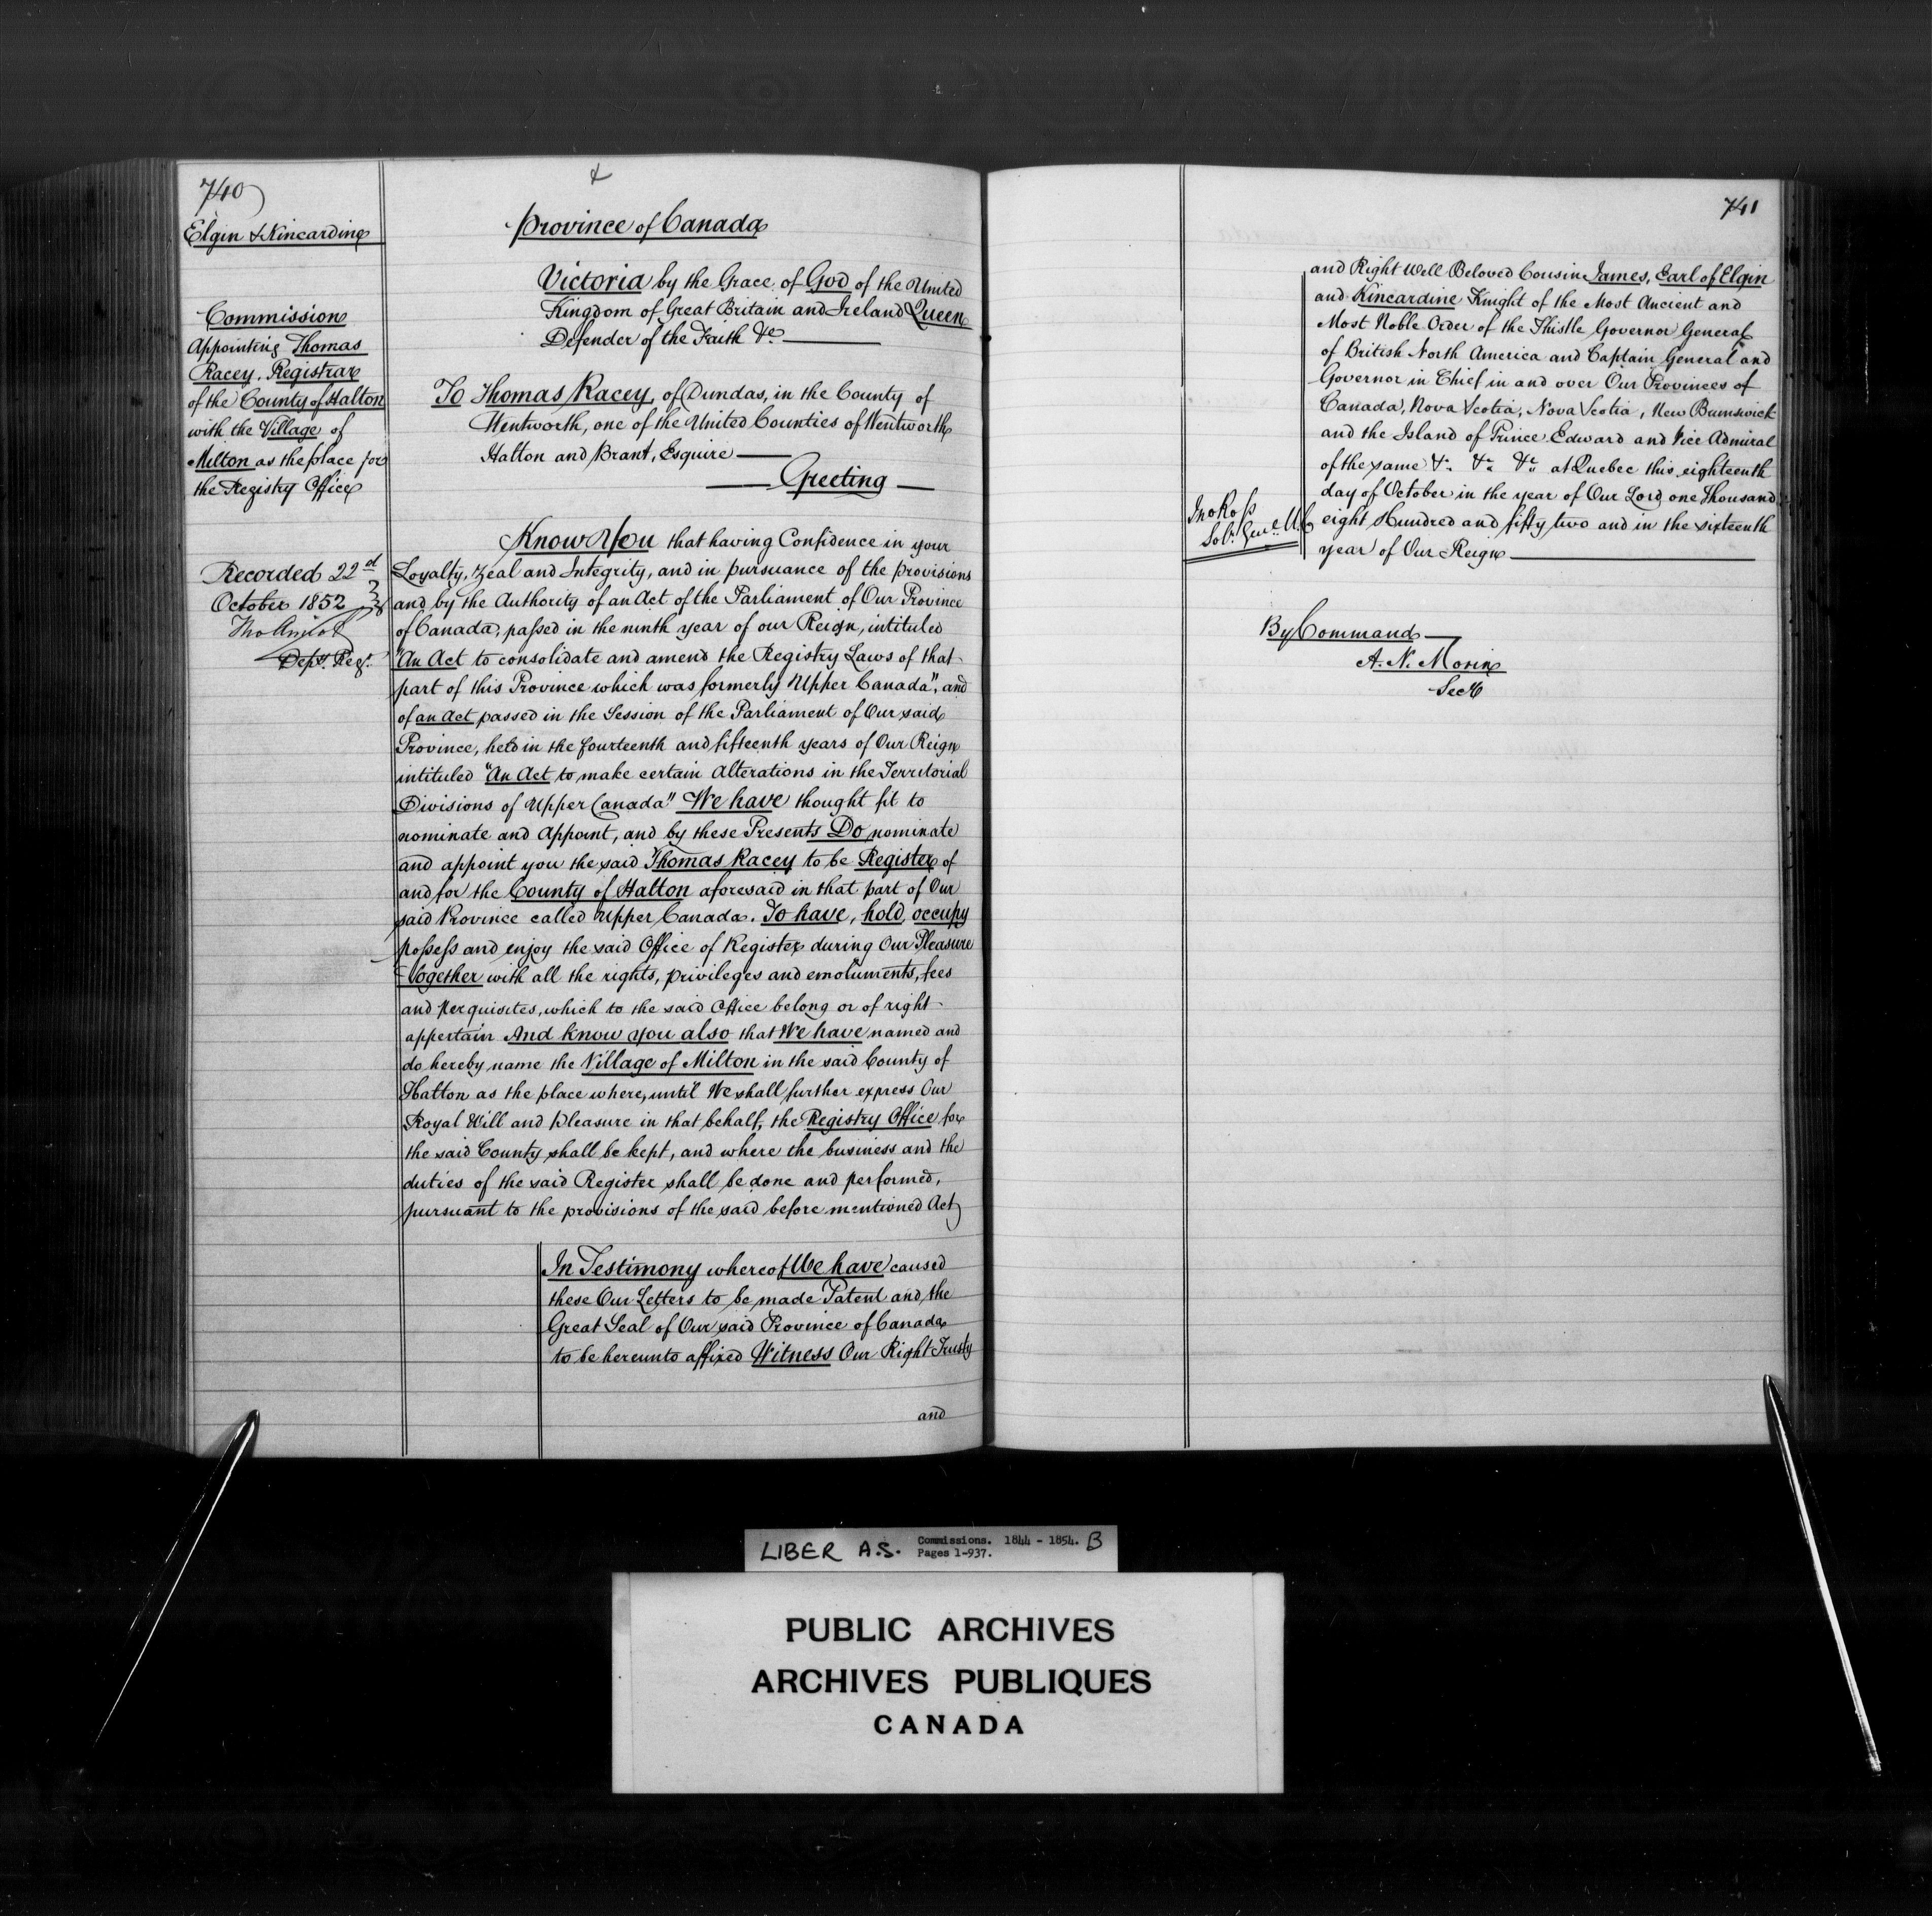 740
Elgin & Kincardine
Commission
Appointing Thomas
Racey, Registrar
of the County of Halton
with the Village of
Milton as the place for
the Registry Office
Recorded 22nd
October 1852
Tho Amiot
Depy. Regr.
Province of Canada
Victoria by the Grace of God of the United
Kingdom of Great Britain and Ireland Queen
Defender of the Faith &c
To Thomas Racey, of Dundas, in the County of
Wentworth, one of the United Counties of Wentworth
Halton and Brant, Esquire
Greeting
Know You that having Confidence in your
Loyalty, Zeal and Integrity, and in pursuance of the provisions
and by the Authority of an Act of the Parliament of Our Province
of Canada, passed in the ninth year of our Reign, intituled
"An Act to consolidate and amend the Registry Laws of that
part of this Province which was formerly Upper Canada", and
of an Act passed in the Session of the Parliament of Our said
Province, held in the fourteenth and fifteenth years of Our Reign
intituled "An Act to make certain Alterations in the Territorial
Divisions of Upper Canada" We have thought fit to
nominate and Appoint, and by these Presents Do nominate
and appoint you the said Thomas Racey to be Register of
and for the County of Halton aforesaid in that part of Our
said Province called Upper Canada. To have, hold, occupy
possess and enjoy the said Office of Register during Our Pleasure
Together with all the rights, privileges and emoluments, fees
and perquisites, which to the said Office belong or of right
appertain And know you also that We have named and
do hereby name the Village of Milton in the said County of
Halton as the place where, until We shall further express Our
Royal Will and Pleasure in that behalf, the Registry Office for
the said County shall be kept, and where the business and the
duties of the said Register shall be done and performed,
pursuant to the provisions of the said before mentioned Act
In Testimony whereof We have caused
these Our Letters to be made Patent and the
Great Seal of Our said Province of Canada
to be hereunto affixed Witness Our Right Trusty
and
741
and Right Well Beloved Cousin James, Earl of Elgin
and Kincardine Knight of the Most Ancient and
Most Noble Order of the Thistle Governor General
of British North America and Captain General and
Governor in Chief in and over Our Provinces of
Canada, Nova Scotia, Nova Scotia, New Brunswick
and the Island of Prince Edward and Vice Admiral
of the same &c &c &c at Quebec this eighteenth
day of October in the year of Our Lord one Thousand
eight Hundred and fifty two and in the sixteenth
year of Our Reign
Jno Ross
Solr. Genl. U.C
By Command
A. N. Morin
Secy
LIBER A.S. Commissions. 1844 - 1854. B
Pages 1-937.
PUBLIC ARCHIVES
ARCHIVES PUBLIQUES
CANADA